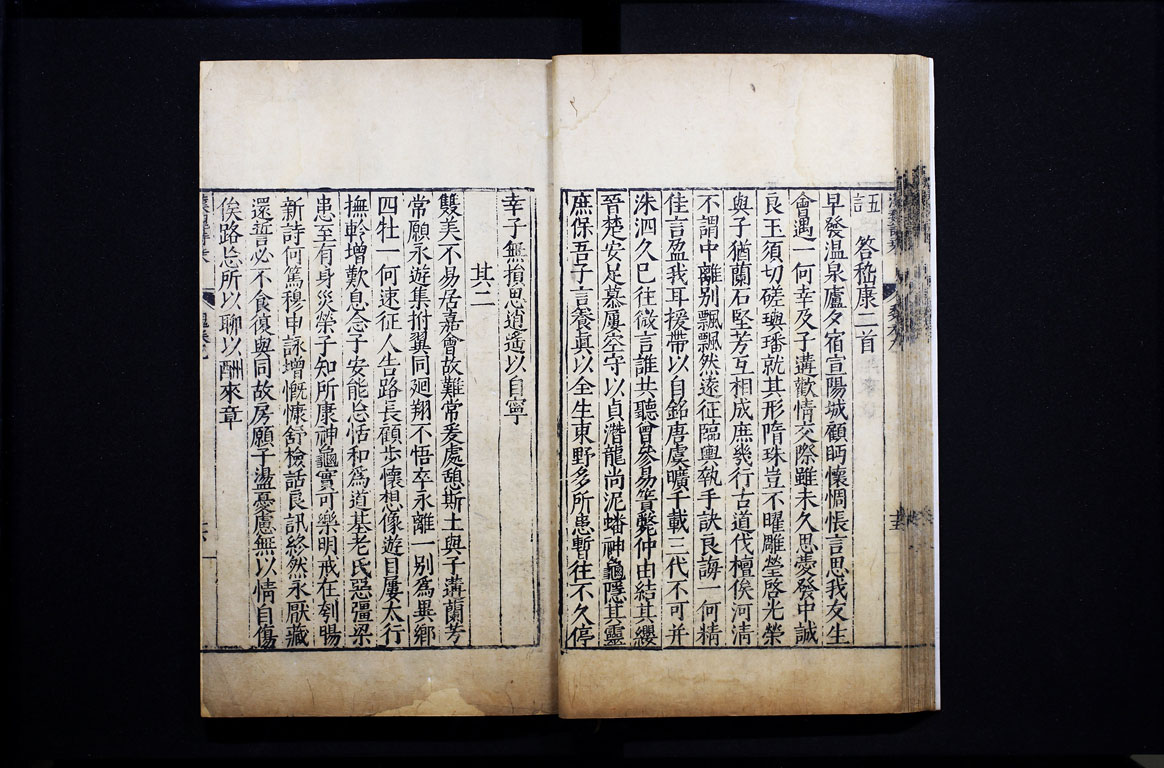 五言
答嵇康二首
早發溫泉廬夕宿宣陽城顧眄懷惆悵言思我友生
會遇一何幸及子遘歡情交際雖未久思愛發中誠
良玉須切磋璵璠就其形隋珠豈不曜雕瑩啓光榮
與子猶蘭石堅芳互相成庶幾行古道伐檀俟河清
不謂中離别飄飄然遠征臨輿執手訣良誨一何精
佳言盈我耳援帶以自銘唐虞曠千載三代不可并
洙泗久已往微言誰共聽曾參易簀斃仲由結其纓
晉楚安足慕屢空守以貞潛龍尚泥蟠神龜隱其靈
庶保吾子言養眞以全生東野多所患暫往不久停
幸子無損思逍遙以自寧
其二
雙美不易居嘉會故難常爰處憩斯土與子遘蘭芳
常願永遊集拊翼同廻翔不悟卒永離一别爲異鄉
四牡一何速征人告路長顧步懷想像遊目屢太行
撫軫增歎息念子安能忘恬和爲道基老氏惡彊梁
患至有身災榮子知所康神龜實可樂明戒在刳腸
新詩何篤穆申詠增慨慷舒檢話良訊終然永厭藏
還誓必不食復與同故房願子盪憂慮無以情自傷
俟路忘所以聊以酬來章